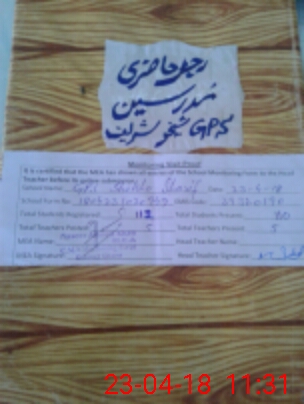 رجسٹر حاضری
مدرسین
GPS شیخو شریف
Monitoring Visit Proof
It is certified that the MEA has shown all entries of the School Monitoring Form to the Head
Teacher before its online submission.
School Name: GPS Sheikho Sharif Date 23-4-18
School Form No
Total Students Registered: 112 Total Students Present: 80
Total Teachers Posted: 5 Total Teachers Present: 5
MEA Name: Head Teacher Name:
MEA Signature: Head Teacher Signature:
23-04-18 11:31